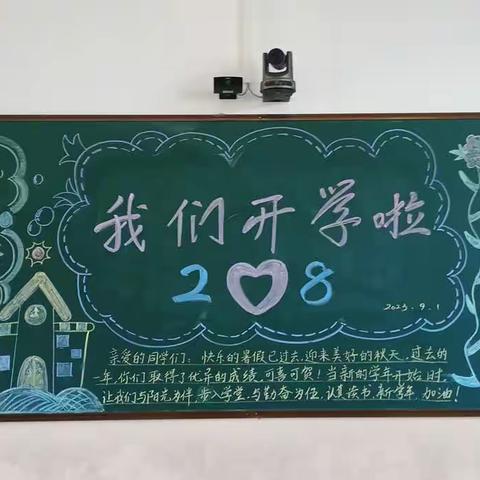 我们开学啦
2 0 8
2023.9.1
亲爱的同学们：快乐的暑假已过去，迎来美好的秋天，过去的
一年，你们取得了优异的成绩，可喜可贺！当新的学年开始时，
让我们与阳光为伴，步入学堂，与勤奋为伍，认真读书，新学年，加油！